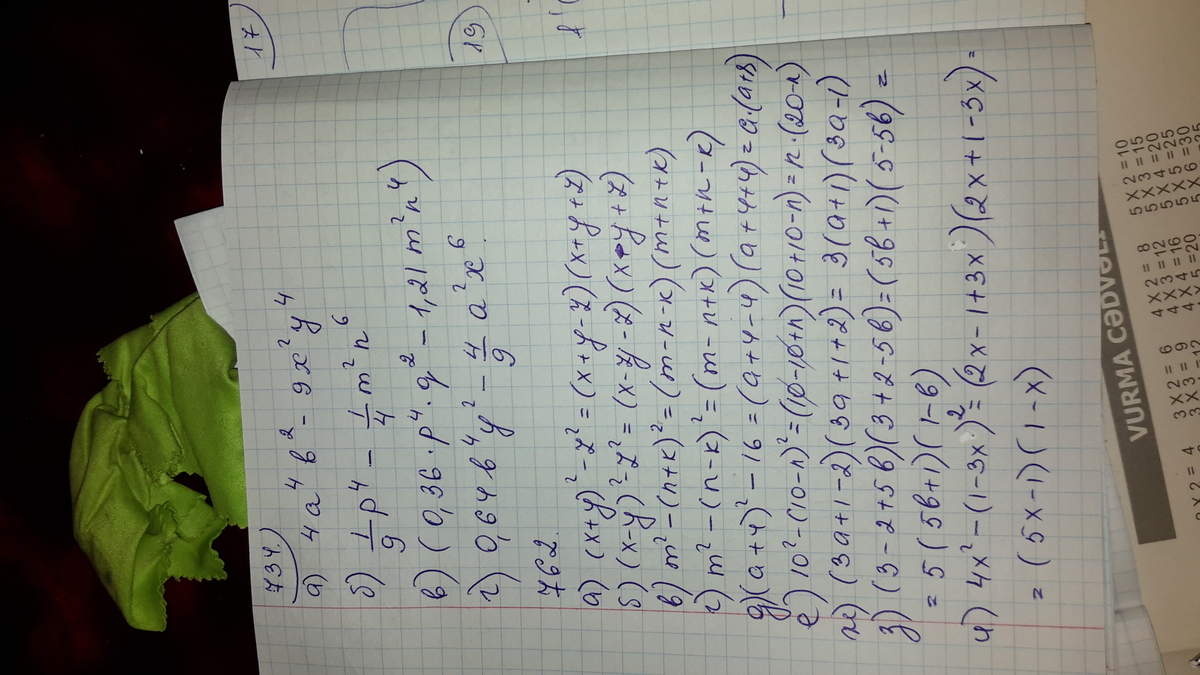 17)
19)
734)
а) 4a⁴b² - 9x²y⁴
б) 1/9 p⁴ - 1/4 m²n⁶
в) (0,36·p⁴·q² - 1,21m²n⁴)
г) 0,64b⁴y² - 4/9 a²x⁶.
762.
а) (x+y)² - z² = (x+y-z)(x+y+z)
б) (x-y)² - z² = (x-y-z)(x-y+z)
в) m² - (n+к)² = (m-n-к)(m+n+к)
г) m² - (n-к)² = (m-n+к)(m+n-к)
д) (a+4)² - 16 = (a+4-4)(a+4+4) = a·(a+8)
е) 10² - (10-n)² = (10-10+n)(10+10-n) = n·(20-n)
ж) (3a+1-2)(3a+1+2) = 3(a+1)(3a-1)
з) (3-2+5b)(3+2-5b) = (5b+1)(5-5b) =
= 5(5b+1)(1-b)
и) 4x² - (1-3x)² = (2x-1+3x)(2x+1-3x) =
= (5x-1)(1-x)
VURMA CƏDVƏLİ
2 X 2 = 4 3 X 2 = 6 4 X 2 = 8 5 X 2 = 10
3 X 3 = 9 4 X 3 = 12 5 X 3 = 15
4 X 4 = 16 5 X 4 = 20
5 X 5 = 25